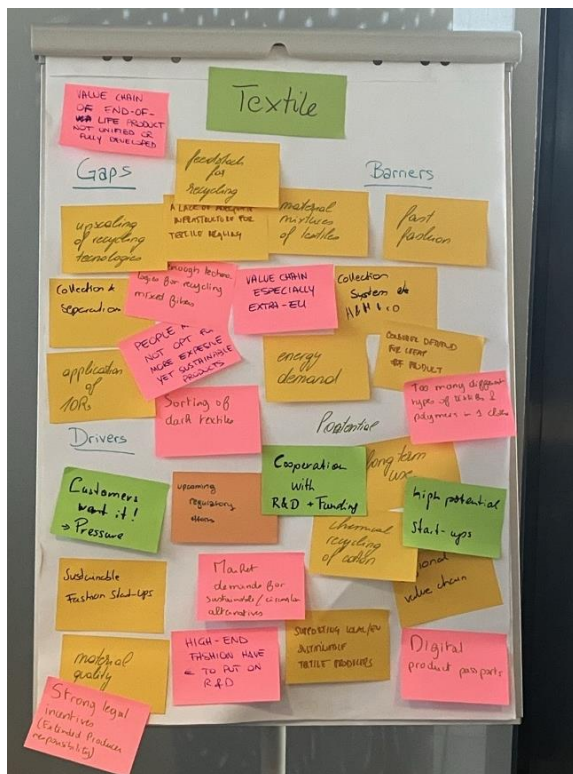 Textile
VALUE CHAIN
OF END-OF-
LIFE PRODUCT
NOT UNIFIED OR
FULLY DEVELOPED
Gaps
Barriers
feedstock
for
recycling
upscaling
of recycling
technologies
A LACK OF ADEQUATE
INFRASTRUCTURE FOR
TEXTILE RECYCLING
material
mixtures
of textiles
fast
fashion
Collection &
separation
enough techno-
logies for recycling
mixed fibers
VALUE CHAIN
ESPECIALLY
EXTRA-EU
Collection
System
PEOPLE
NOT OPT
MORE EXPENSIVE
YET SUSTAINABLE
PRODUCTS
energy
demand
DEMAND
FOR CHEAP
PRODUCT
application
of
10Rs
Sorting of
dark textiles
Too many different
types of textiles &
polymers in 1
Drivers
Potential
Customers
want it!
→ Pressure
upcoming
regulatory
Cooperation
with
R&D + Funding
long term
use
high potential
start-ups
chemical
recycling
of cotton
value chain
Sustainable
Fashion Start-ups
Market
demands for
sustainable / circular
alternatives
material
quality
HIGH-END
FASHION HAVE
TO PUT ON
R&D
SUPPORTING LOCAL/EU
SUSTAINABLE
TEXTILE PRODUCERS
Digital
product passports
Strong legal
incentives
(Extended Producer
responsibility)